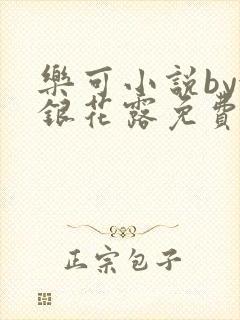 樂可小説by
銀花露免費
正宗包子